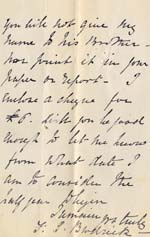 you will not give my
name to his Brother -
nor print it in your
paper or report - I
enclose a cheque for
£5. Will you be good
enough to let me know
from what date I
am to consider the
half year to begin
I remain yrs truly